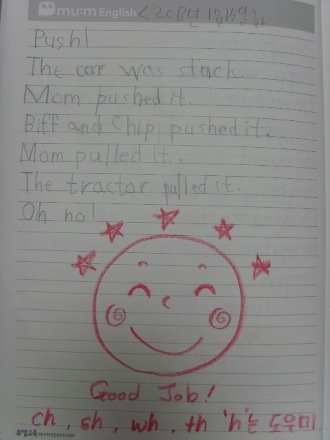 mum English <2018년 1월 15일
Push!
The car was stack.
Mom pushed it.
Biff and Chip pushed it.
Mom pulled it.
The tractor pulled it.
Oh no!
Good Job!
ch, sh, wh, th 'h'는 도우미.